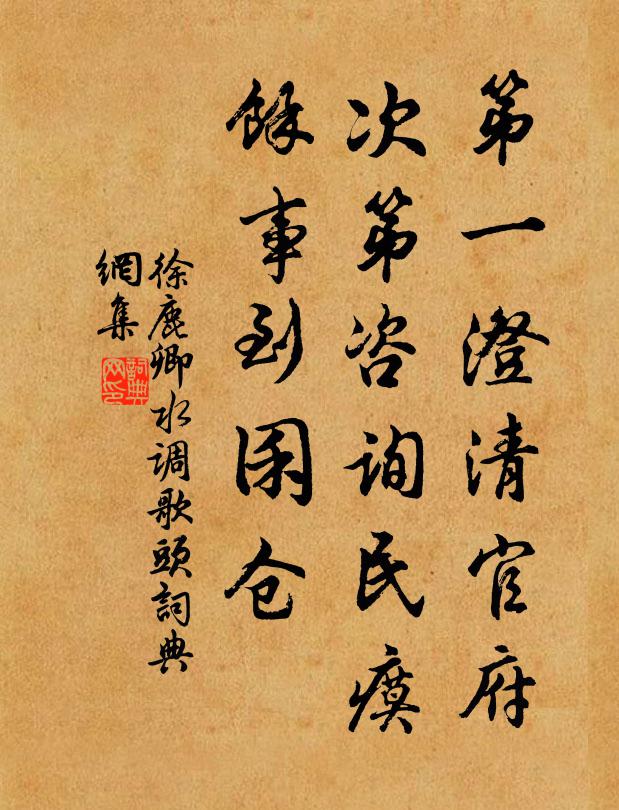 第一澄清官府
次第咨询民瘼
餘事到囷仓
徐鹿卿水调歌頭詞典
網集
詞典
网印